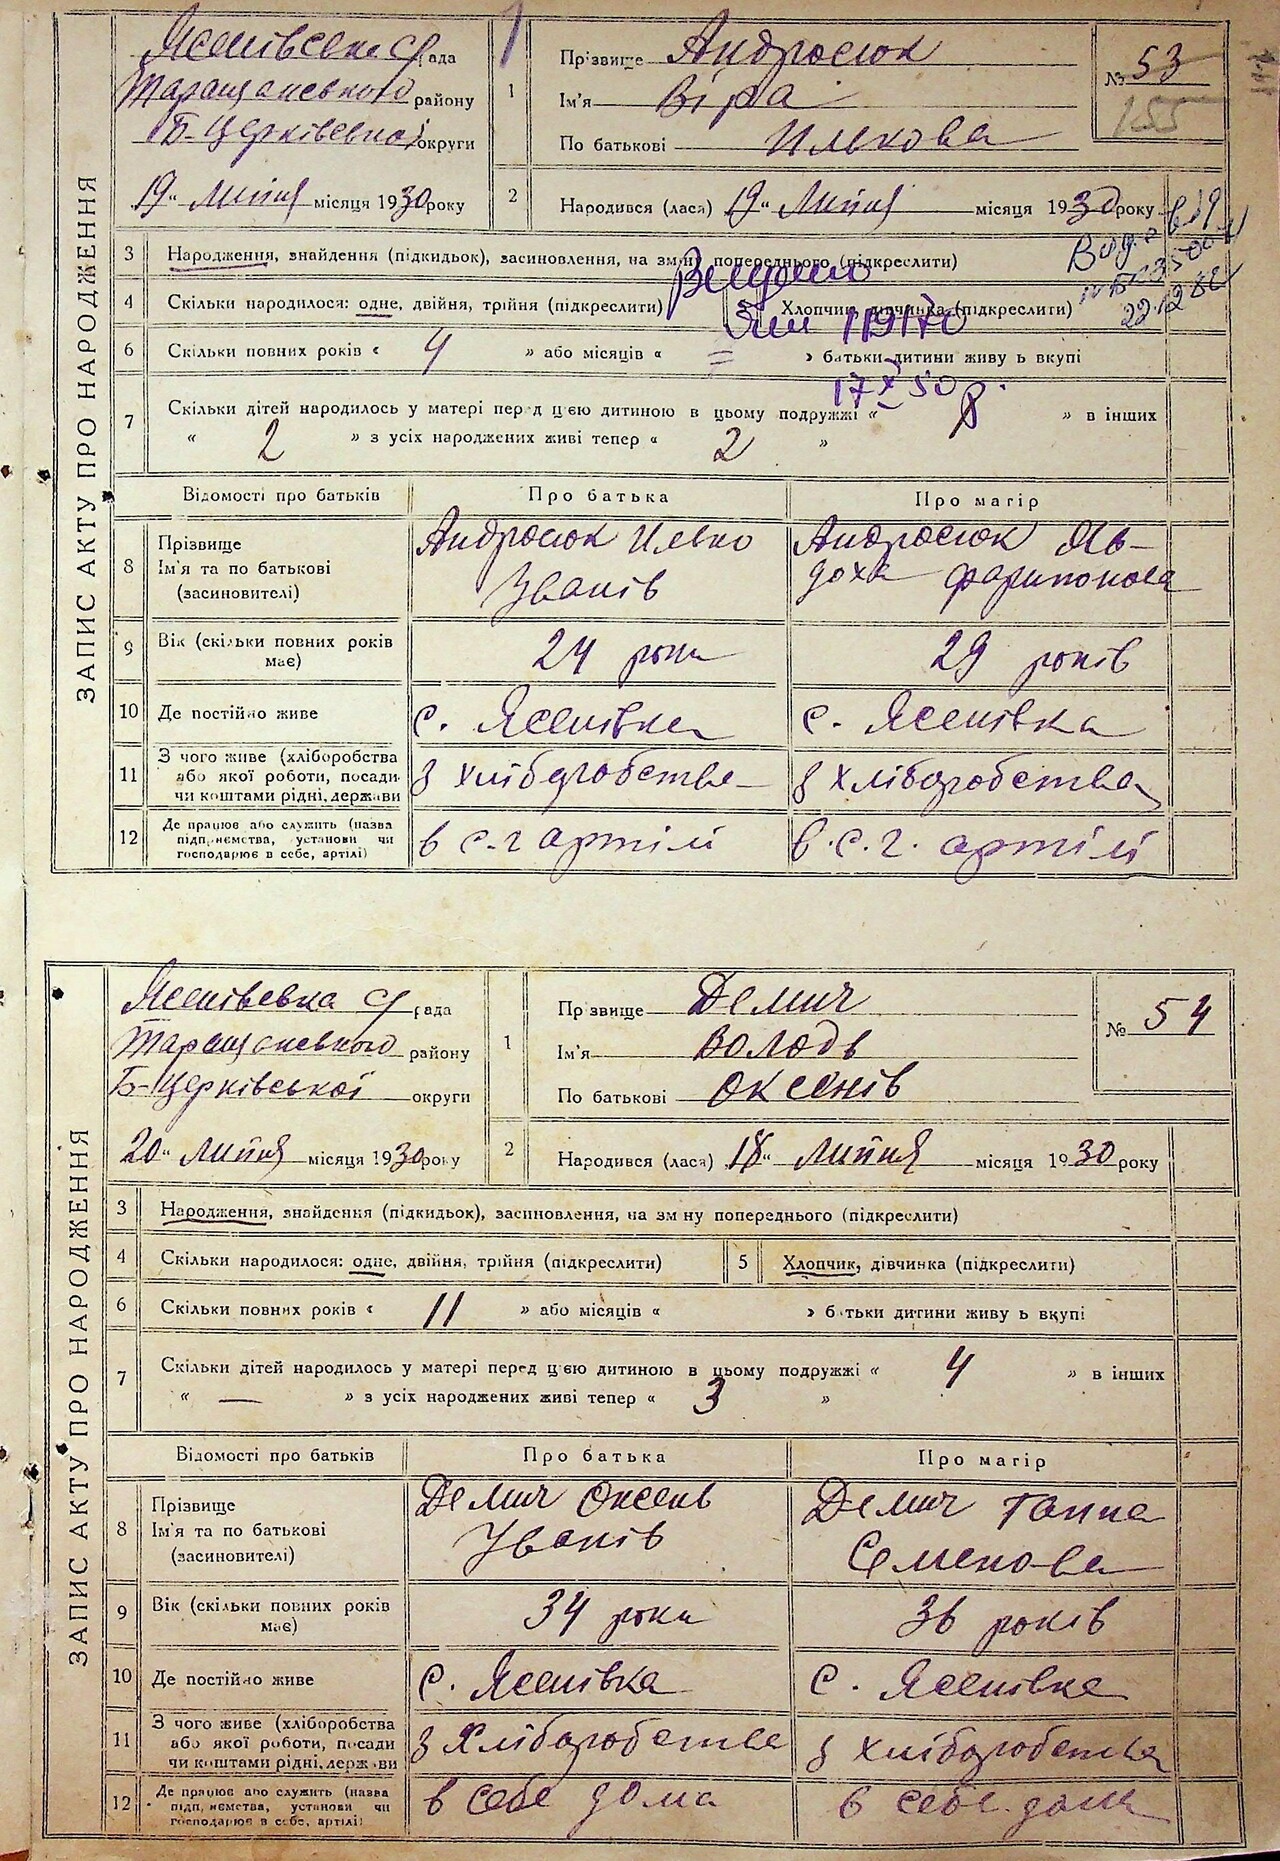 ЗАПИС АКТУ ПРО НАРОДЖЕННЯ
Ясенівська с/рада
Таращанського району
Б-Церківської округи
19 " Липня місяця 1930 року
1
Прізвище Андросюк
Ім'я Віра
По батькові Илькова
№ 53
155
2
Народився (лася) 19 " Липня місяця 1930 року
3 Народження, знайдення (підкидьок), засиновлення, на зміну попереднього (підкреслити)
4 Скільки народилося: одне, двійня, трійня (підкреслити) 5 Хлопчик, дівчинка (підкреслити)
Видано
119170
17 X 50 р.
22.12.82
6 Скільки повних років « 4 » або місяців « = » батьки дитини живуть вкупі
7 Скільки дітей народилось у матері перед цією дитиною в цьому подружжі « » в інших
« 2 » з усіх народжених живі тепер « 2 »
Відомості про батьків Про батька Про матір
8 Прізвище Ім'я та по батькові (засиновителі)
Андросюк Илько
Іванів
Андросюк Яв-
доха
9 Вік (скільки повних років має) 24 роки 29 років
10 Де постійно живе с. Ясенівка с. Ясенівка
11 З чого живе (хліборобства або якої роботи, посади чи коштами рідні, держави з хліборобства з хліборобства
12 Де працює або служить (назва підприємства, установи чи господарює в себе, артілі) в с.г артілі в.с.г. артілі
ЗАПИС АКТУ ПРО НАРОДЖЕННЯ
Ясенівська с/рада
Таращанського району
Б-Церківської округи
20 " Липня місяця 1930 року
1
Прізвище Демич
Ім'я Володь
По батькові Оксенів
№ 54
2
Народився (лася) 18 " Липня місяця 1930 року
3 Народження, знайдення (підкидьок), засиновлення, на зміну попереднього (підкреслити)
4 Скільки народилося: одне, двійня, трійня (підкреслити) 5 Хлопчик, дівчинка (підкреслити)
6 Скільки повних років « 11 » або місяців « » батьки дитини живуть вкупі
7 Скільки дітей народилось у матері перед цією дитиною в цьому подружжі « 4 » в інших
« — » з усіх народжених живі тепер « 3 »
Відомості про батьків Про батька Про матір
8 Прізвище Ім'я та по батькові (засиновителі)
Демич Оксень
Іванів
Демич Ганна
Семенова
9 Вік (скільки повних років має) 34 роки 36 років
10 Де постійно живе с. Ясенівка с. Ясенівка
11 З чого живе (хліборобства або якої роботи, посади чи коштами рідні, держави з хліборобства з хліборобства
12 Де працює або служить (назва підприємства, установи чи господарює в себе, артілі) в себе дома в себе дома